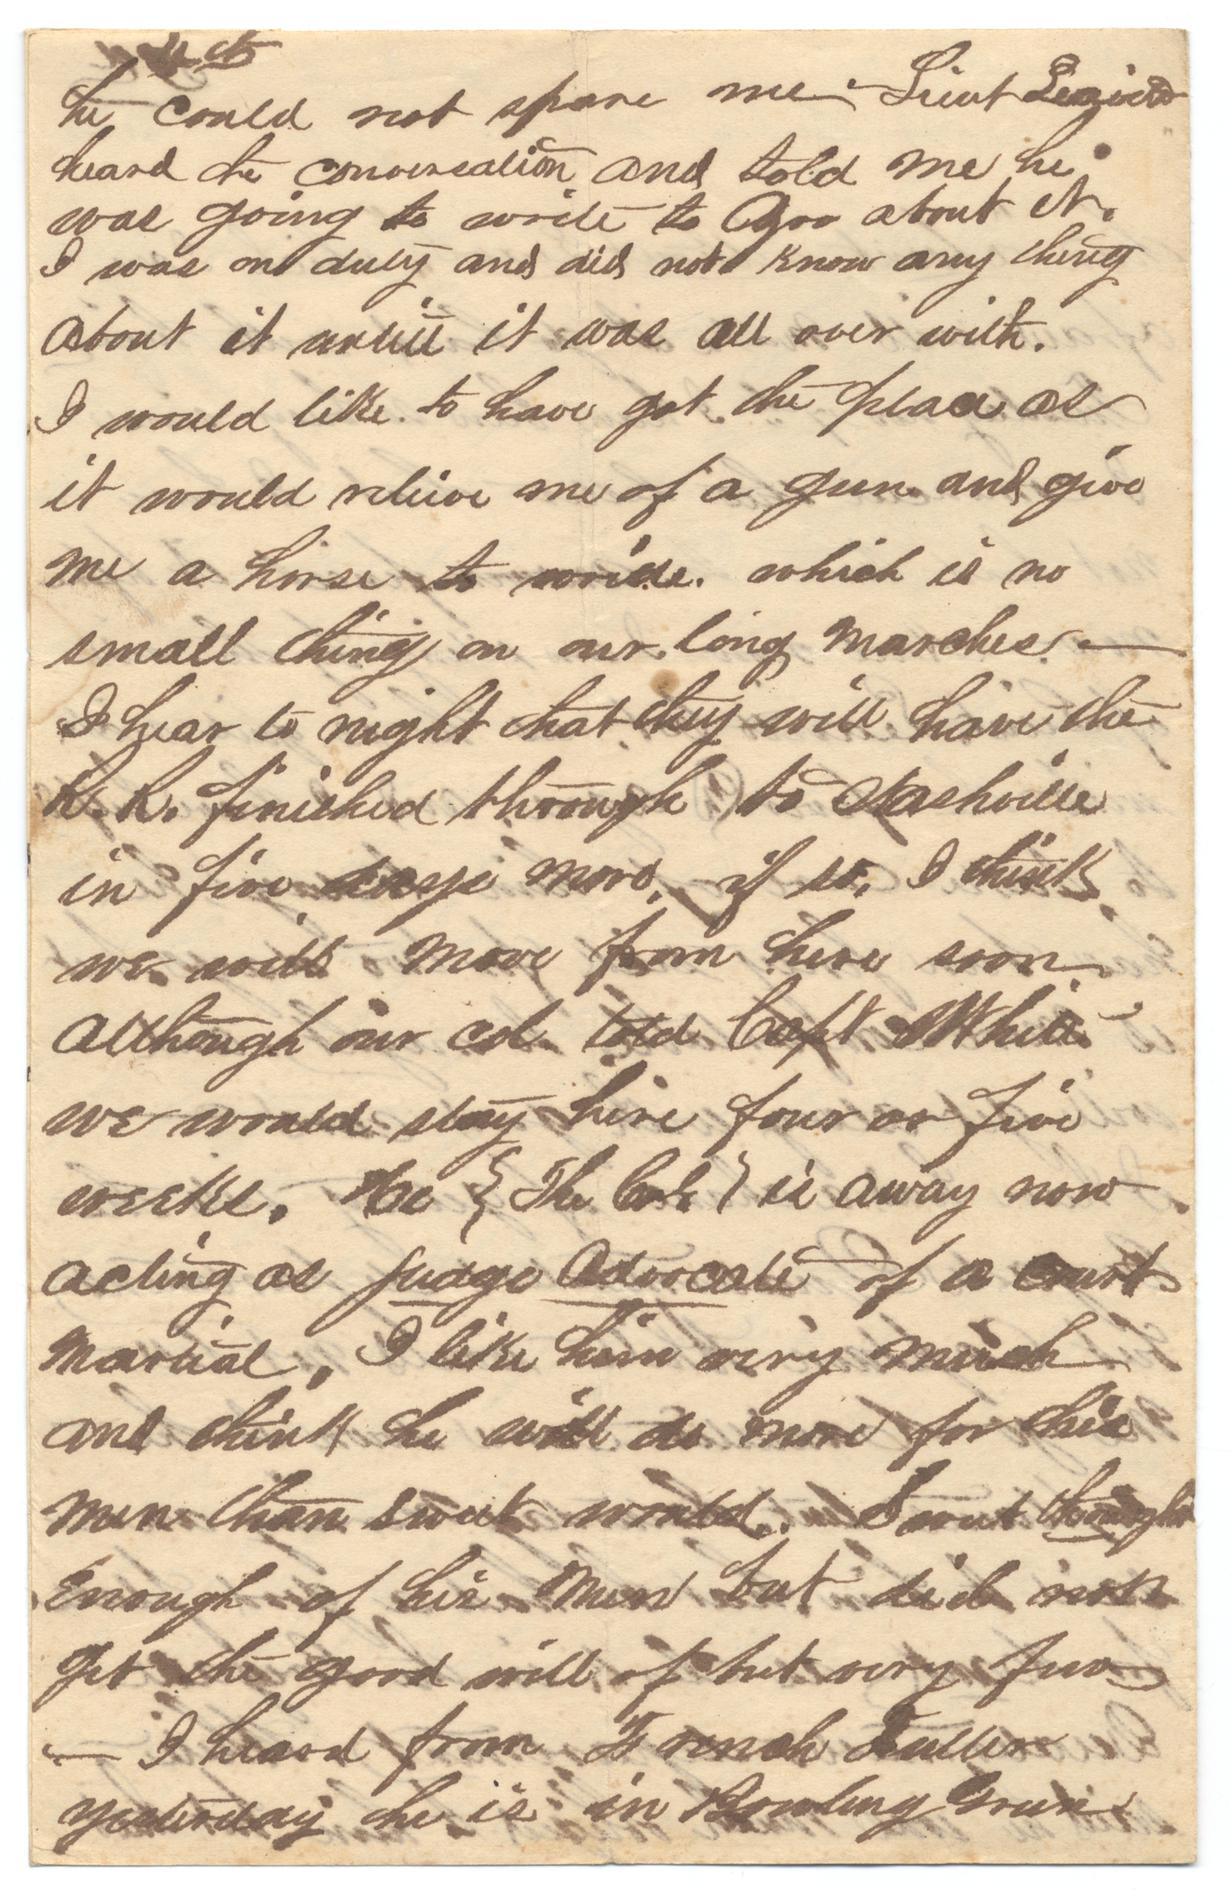 4th
he could not spare me - Lieut
heard the conversation and told me he
was going to write to about it.
I was on duty and did not know any thing
about it untill it was all over with.
I would like to have got the place as
it would relieve me of a gun and give
me a horse to wride. which is no
small thing on our long marches. —
I hear to night that they will have the
R. R. finished through to Nashville
in five days more, if so, I think
we will move from here soon
although our col. told Capt White
we would stay here four or five
weeks. He { The Col. } is away now
acting as Judge Advocate of a court
martial, I like him very much
and think he will do more for his
men than Sweet would. Sweet thought
Enough of his men but did not
get the good will of but very few
— I heard from French Fuller
yesterday he is in Bowling Green